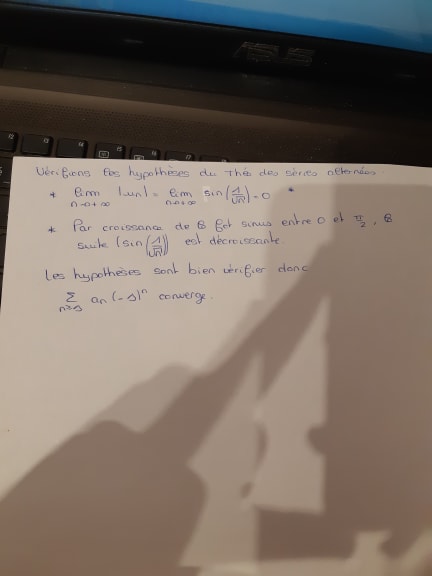 ASUS
Vérifions les hypothèses du Thé des séries alternées.
* lim |un| = lim sin(1/√n) = 0 *
n→+∞ n→+∞
* Par croissance de la fct sinus entre 0 et π/2, la
suite (sin(1/√n)) est décroissante.
Les hypothèses sont bien vérifier donc
∑ an (-1)^n converge.
n≥1